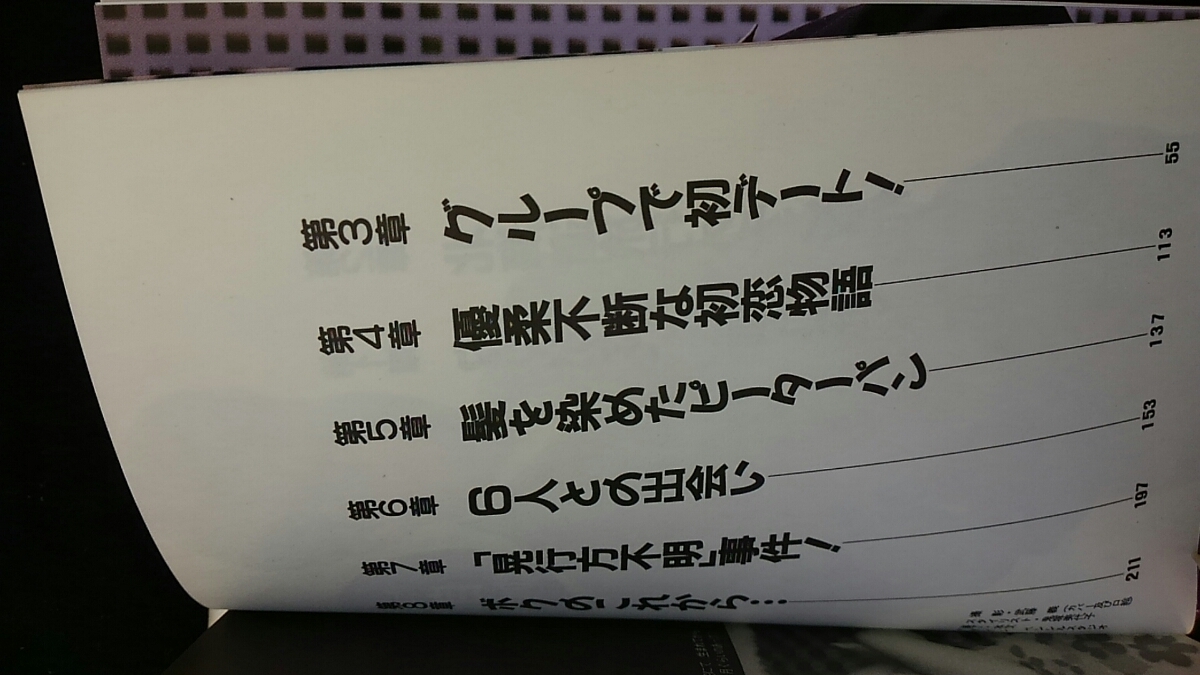 第3章 グループで初デート! 55
第4章 優柔不断な初恋物語 113
第5章 髪を染めたピーターパン 137
第6章 6人との出会い 153
第7章 「晃行方不明」事件! 197
第8章 ボクのこれから… 211